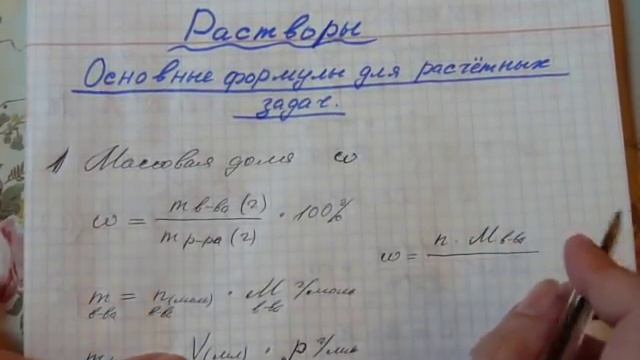 Растворы
Основные формулы для расчётных
задач.
1 Массовая доля ω
ω = m в-ва (г) / m р-ра (г) · 100%
ω = n · M в-ва
m в-ва = n (моль) в-ва · M в-ва г/моль
m V(мл) · ρ г/мл